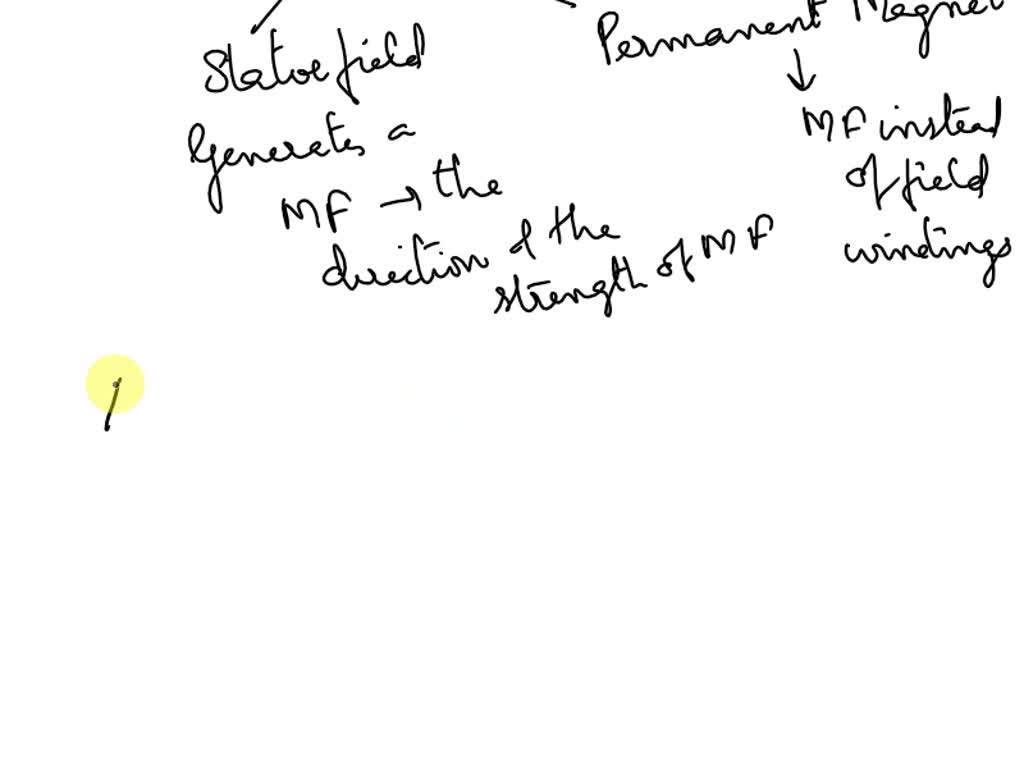 Stator field
Generates a
MF → the
direction & the
strength of MF
Permanent Magnet
↓
MF instead
of field
windings